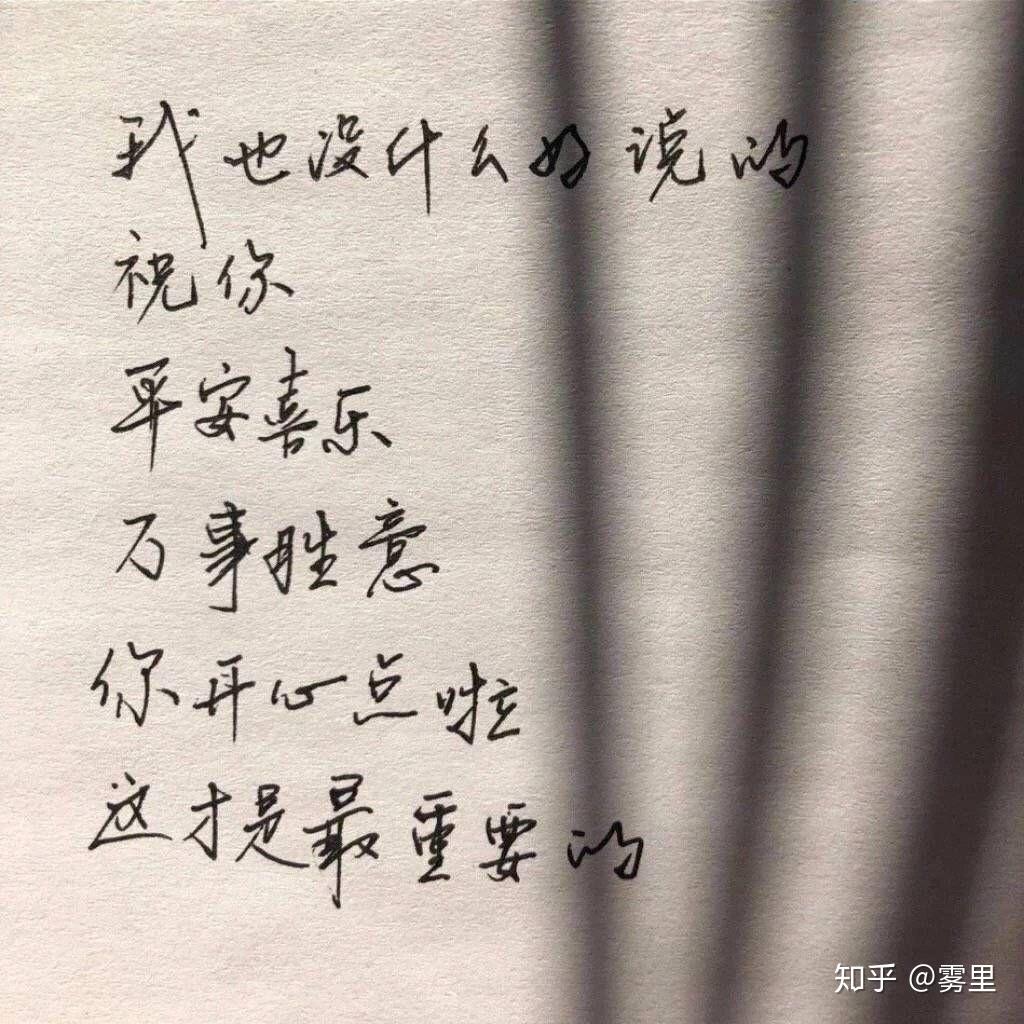 我也没什么好说的
祝你
平安喜乐
万事胜意
你开心点啦
这才是最重要的
知乎 @雾里